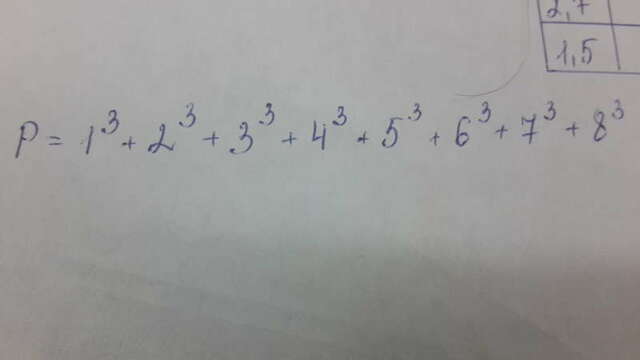 2,7
1,5
P = 1³ + 2³ + 3³ + 4³ + 5³ + 6³ + 7³ + 8³